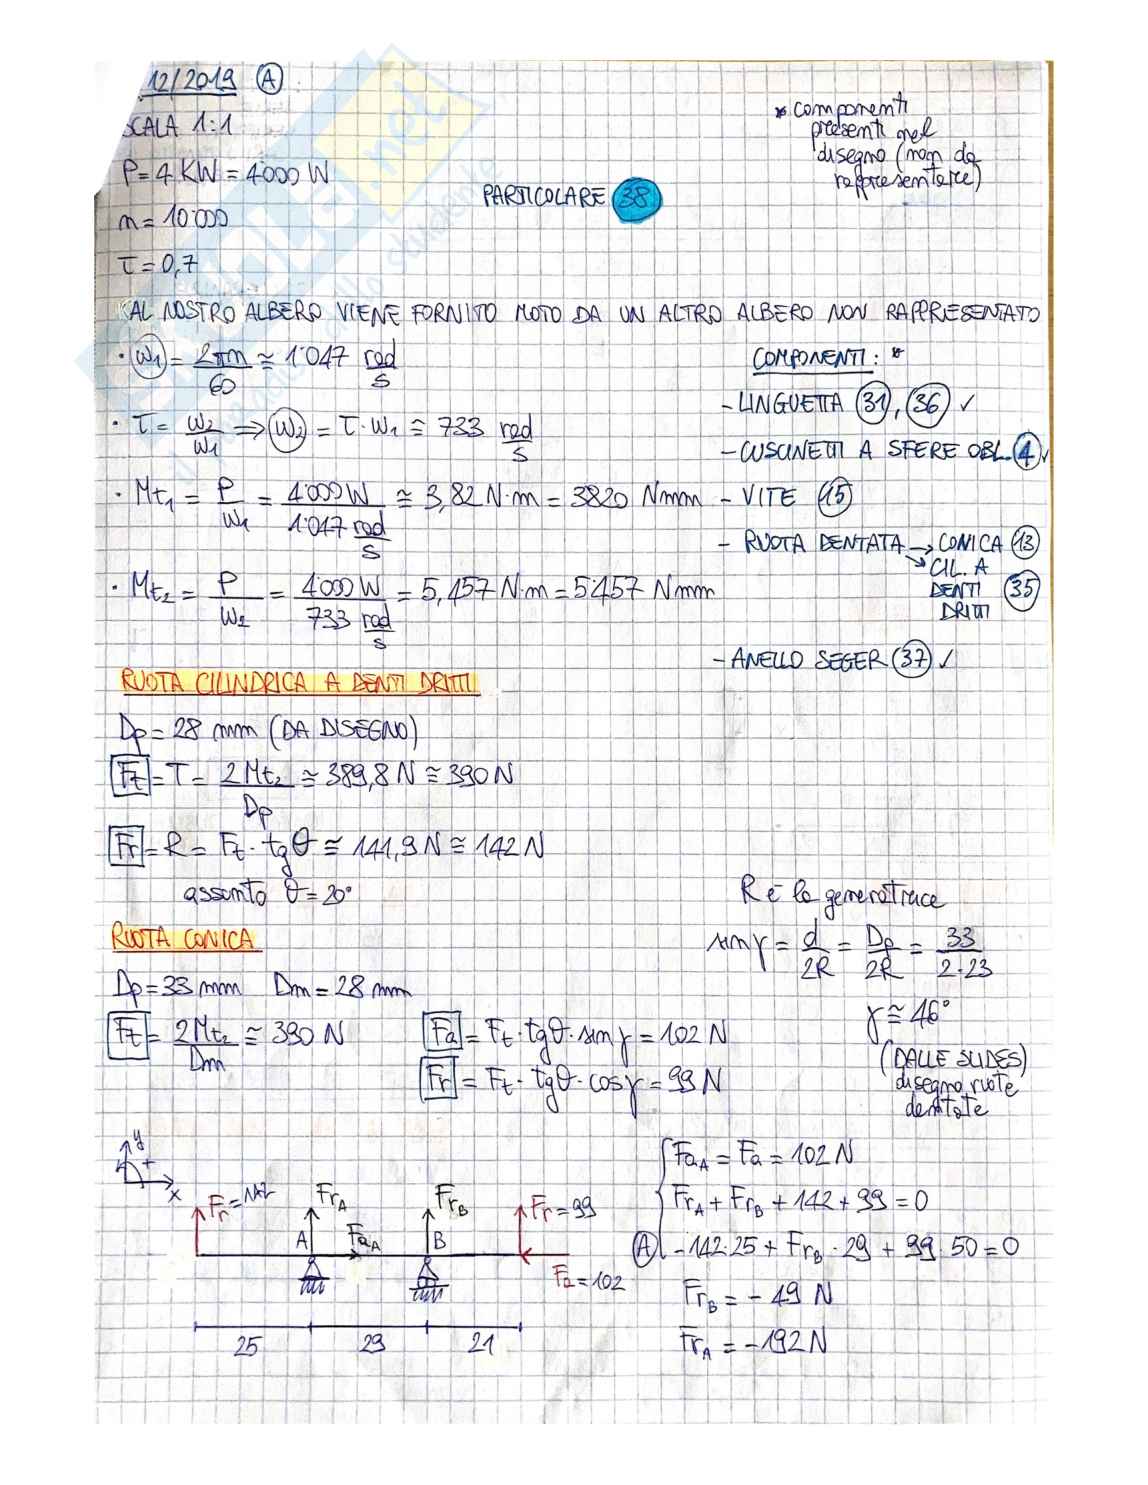 12/2019 (A)
SCALA 1:1
P = 4 KW = 4'000 W
n = 10'000
τ = 0,7
* componenti
presenti nel
disegno (non da
rappresentare)
PARTICOLARE 38
AL NOSTRO ALBERO VIENE FORNITO MOTO DA UN ALTRO ALBERO NON RAPPRESENTATO
· ω1 = 2πn/60 ≅ 1'047 rad/s
· τ = ω2/ω1 ⇒ ω2 = τ · ω1 ≅ 733 rad/s
· Mt1 = P/ω1 = 4'000 W / 1'047 rad/s ≅ 3,82 N·m = 3820 Nmm
· Mt2 = P/ω2 = 4'000 W / 733 rad/s = 5,457 N·m = 5'457 Nmm
COMPONENTI: *
- LINGUETTA 31, 36 ✓
- CUSCINETTI A SFERE OBL. 4 ✓
- VITE 15
- RUOTA DENTATA → CONICA 13
↘ CIL. A
DENTI 35
DRITTI
- ANELLO SEGER 37 ✓
RUOTA CILINDRICA A DENTI DRITTI
Dp = 28 mm (DA DISEGNO)
Ft = T = 2Mt2/Dp ≅ 389,8 N ≅ 390 N
Fr = R = Ft · tgθ ≅ 141,9 N ≅ 142 N
assunto θ = 20°
RUOTA CONICA
Dp = 33 mm Dm = 28 mm
Ft = 2Mt2/Dm ≅ 390 N
Fa = Ft · tgθ · sin γ = 102 N
Fr = Ft · tgθ · cos γ = 99 N
R è la generatrice
sin γ = d/2R = Dp/2R = 33/2·23
γ ≅ 46°
(DALLE SLIDES)
disegno ruote
dentate
y
+
x
Fr = 142
FrA
FrB
Fr = 99
A
FaA
B
Fa = 102
25 29 21
FaA = Fa = 102 N
FrA + FrB + 142 + 99 = 0
(A) -142·25 + FrB · 29 + 99 · 50 = 0
FrB = - 49 N
FrA = -192 N